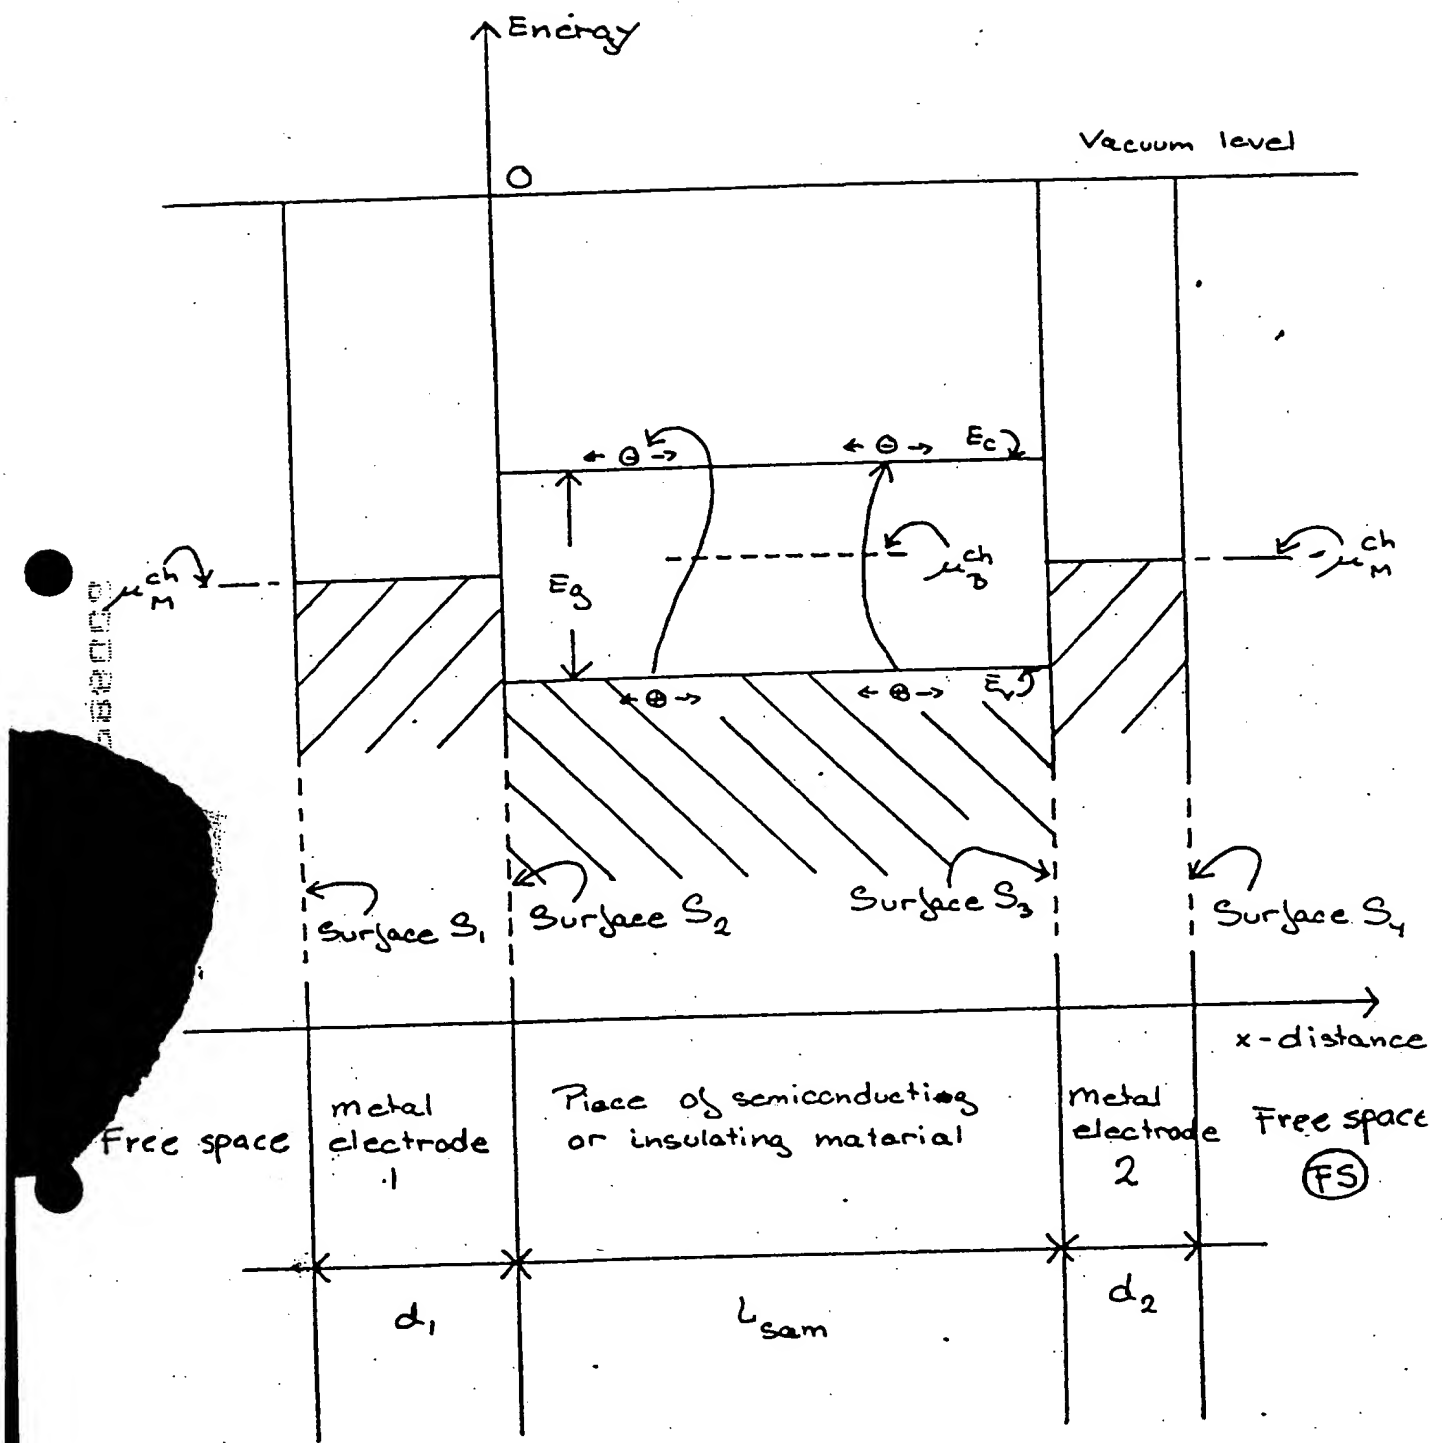 Energy
Vacuum level
O
Ec
μ_M^ch
Eg
μ_B^ch
μ_M^ch
Ev
Surface S1
Surface S2
Surface S3
Surface S4
x-distance
Free space
metal
electrode
1
Piece of semiconducting
or insulating material
metal
electrode
2
Free space
FS
d1
Lsam
d2